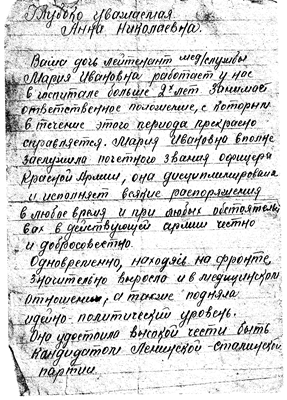 Глубоко уважаемая
Анна Николаевна.
Ваша дочь лейтенант мед/службы
Мария Ивановна работает у нас
в госпитале больше 2х лет занимает
ответственное положение, с которым
в течение этого периода прекрасно
справляется. Мария Ивановна вполне
заслужила почетного звания офицера
Красной Армии, она дисциплинирована
и исполняет всякие распоряжения
в любое время и при любых обстоятельст
вах в действующей армии честно
и добросовестно.
Одновременно, находясь на фронте,
значительно выросла и в медицинском
отношении, а также подняла
идейно-политический уровень.
Она удостоила высокой чести быть
кандидатом Ленинской-сталинской
партии.